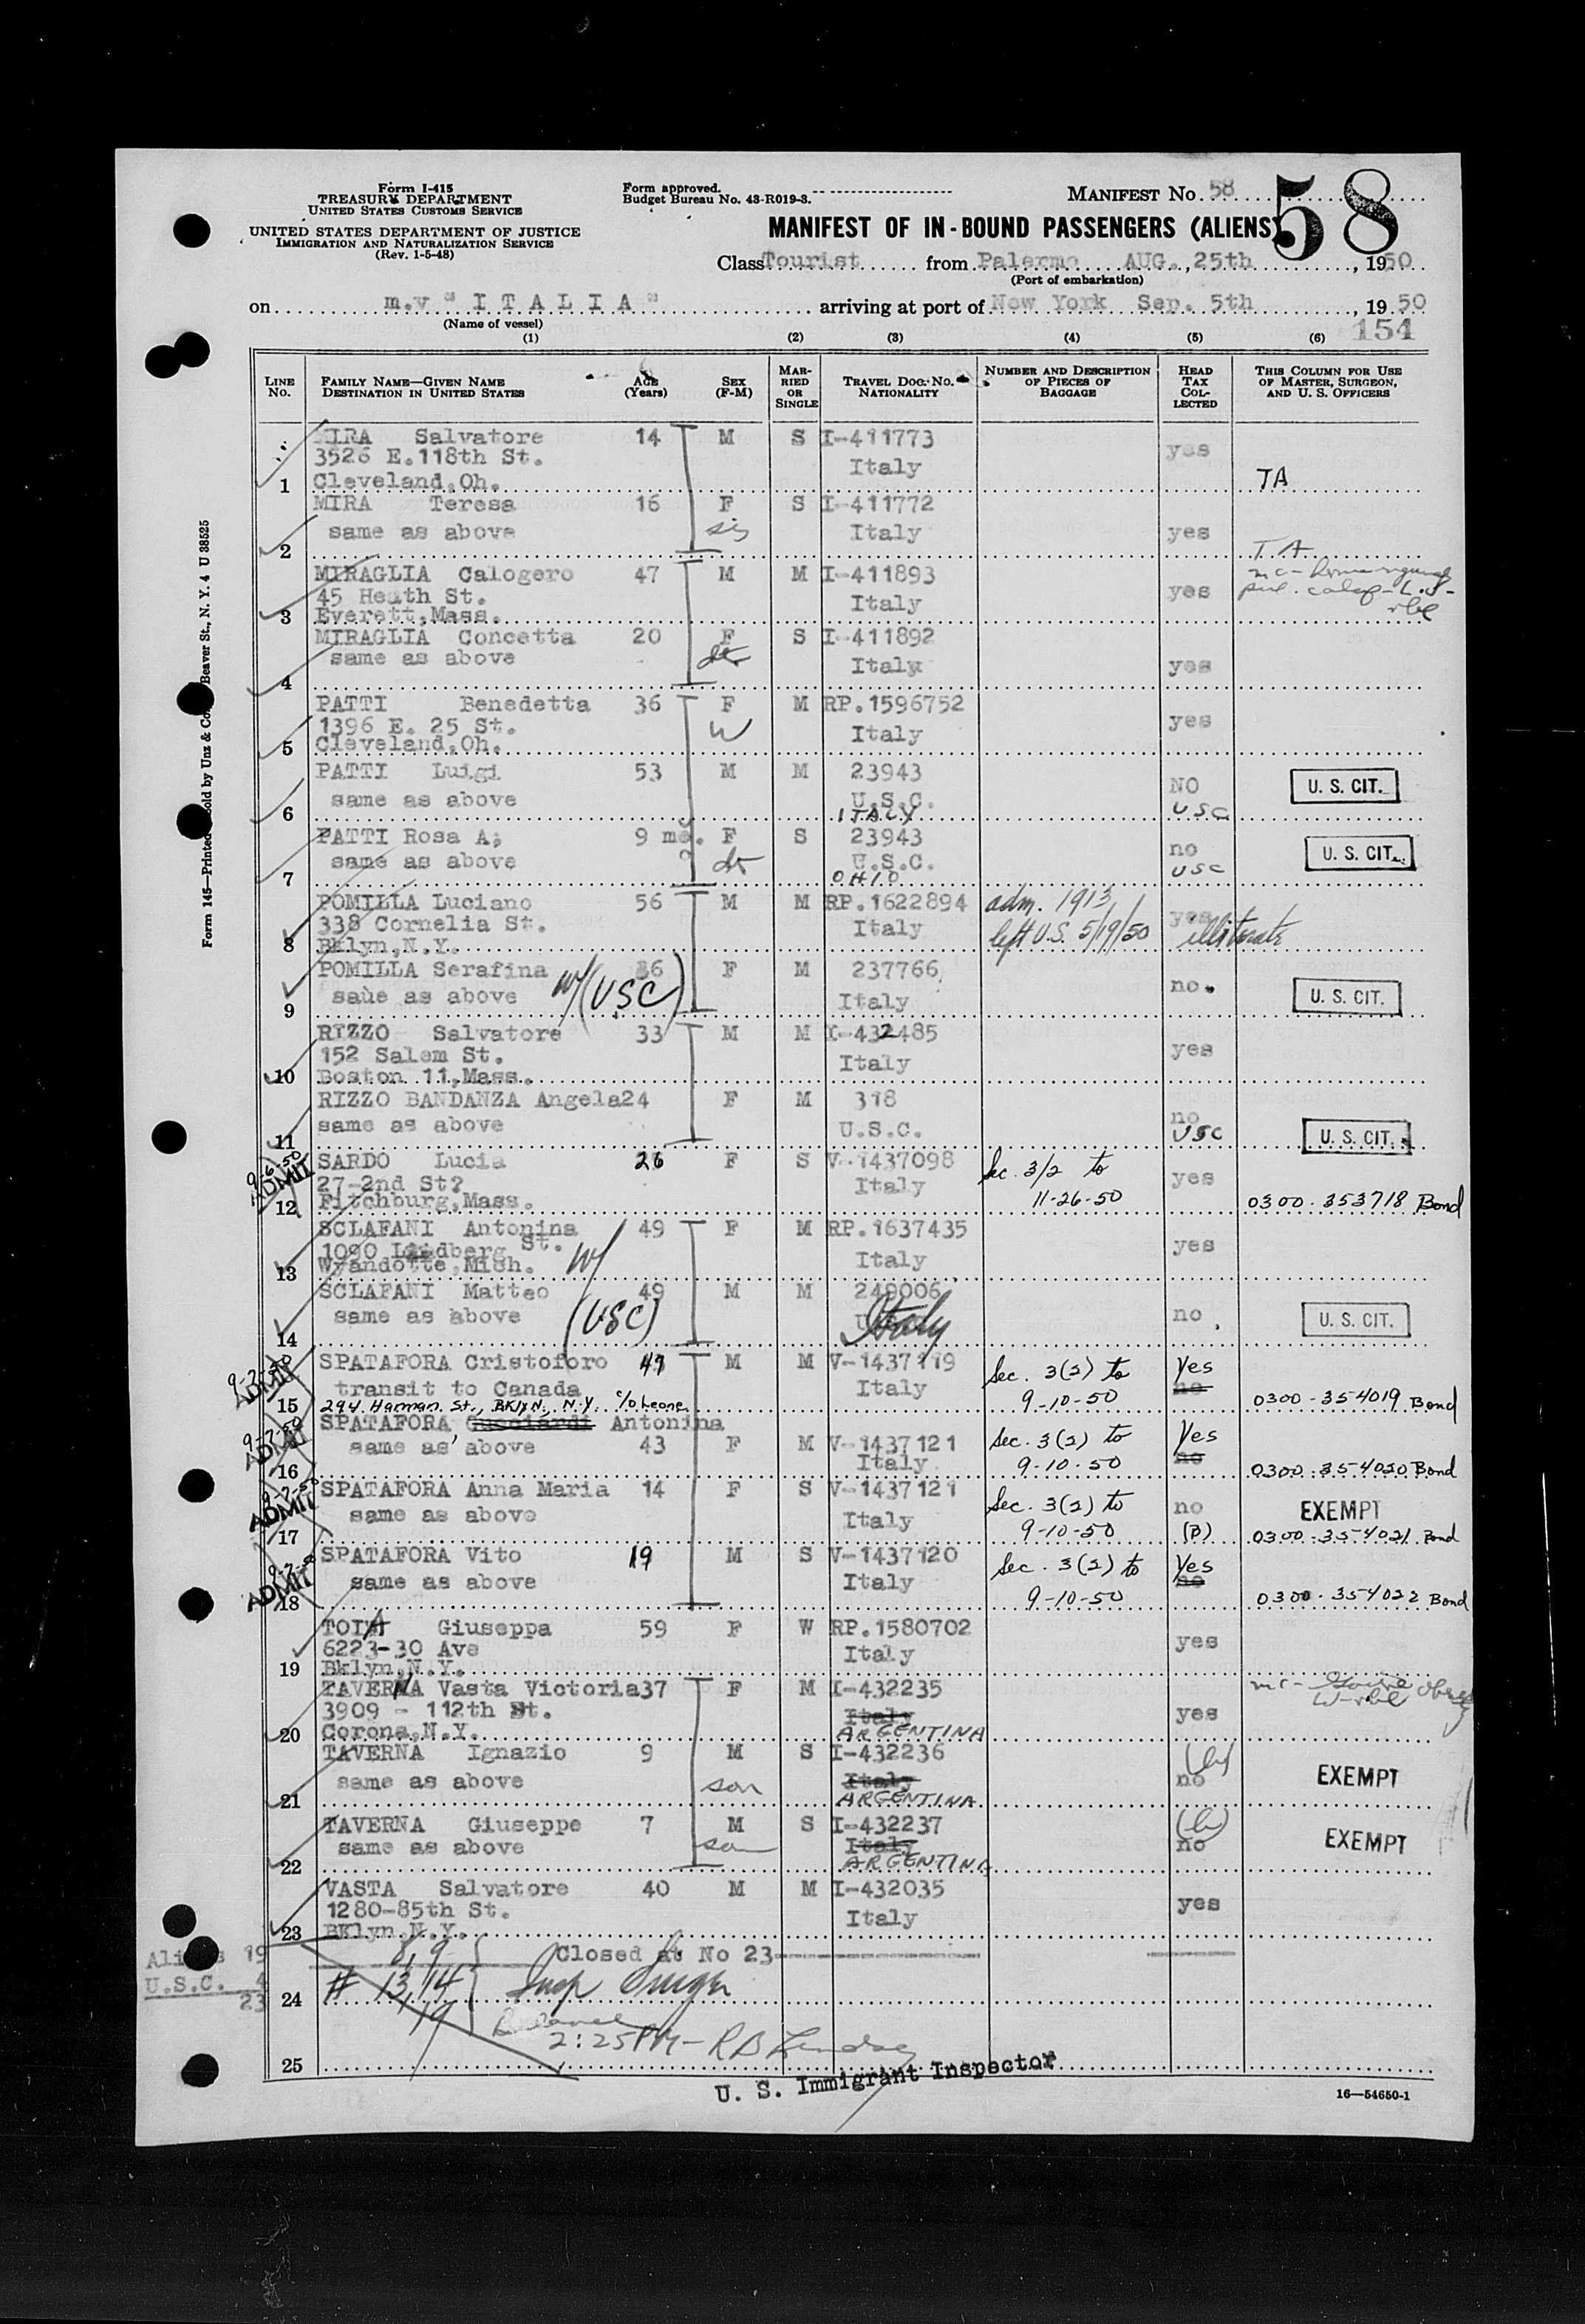 Form I-415
TREASURY DEPARTMENT
UNITED STATES CUSTOMS SERVICE
UNITED STATES DEPARTMENT OF JUSTICE
IMMIGRATION AND NATURALIZATION SERVICE
(Rev. 1-5-48)
Form approved.
Budget Bureau No. 43-R019-3.
MANIFEST No. 58
58
MANIFEST OF IN-BOUND PASSENGERS (ALIENS)
Class Tourist from Palermo AUG., 25th, 1950
(Port of embarkation)
on m.v "ITALIA" arriving at port of New York Sep. 5th, 1950
(Name of vessel)
154
(1) (2) (3) (4) (5) (6)
LINE No. FAMILY NAME—GIVEN NAME DESTINATION IN UNITED STATES AGE (Years) SEX (F-M) MARRIED OR SINGLE TRAVEL DOC. No. NATIONALITY NUMBER AND DESCRIPTION OF PIECES OF BAGGAGE HEAD TAX COLLECTED THIS COLUMN FOR USE OF MASTER, SURGEON, AND U. S. OFFICERS
MIRA Salvatore 14 M S I-411773
3526 E.118th St. Italy yes
1 Cleveland,Oh. TA
MIRA Teresa 16 F S I-411772
same as above sis Italy yes
2 T A
MIRAGLIA Calogero 47 M M I-411893
45 Heath St. Italy yes
3 Everett,Mass.
MIRAGLIA Concetta 20 F S I-411892
same as above Italy yes
4
PATTI Benedetta 36 F M RP.1596752
1396 E. 25 St. W Italy yes
5 Cleveland,Oh.
PATTI Luigi 53 M M 23943 NO
same as above U.S.C. USC U. S. CIT.
6 ITALY
PATTI Rosa A; 9 F S 23943 no
same as above U.S.C. USC U. S. CIT.
7 OHIO
POMILLA Luciano 56 M M RP.1622894 adm. 1913 yes
338 Cornelia St. Italy left U.S. 5/19/50 illiterate
8 Bklyn,N.Y.
POMILLA Serafina F M 237766
saùe as above w/(USC) Italy no. U. S. CIT.
9
RIZZO Salvatore 33 M M I-432485
152 Salem St. Italy yes
10 Boston 11,Mass.
RIZZO BANDANZA Angela24 F M 318 no
same as above U.S.C. USC U. S. CIT.
11
9-6-50 ADMIT
SARDO Lucia 26 F S V-1437098 Sec. 3/2 to
27-2nd St? Italy 11-26-50 yes
12 Fitchburg,Mass. 0300-353718 Bond
SCLAFANI Antonina 49 F M RP.1637435
1090 Lindberg St. W/ Italy yes
13 Wyandotte,Mich.
SCLAFANI Matteo 49 M M 249006
same as above (USC) Italy no U. S. CIT.
14
9-7-50 ADMIT
SPATAFORA Cristoforo 49 M M V-1437119 Sec. 3(2) to Yes
transit to Canada Italy 9-10-50 no
15 294 Harman St., BKlyN., N.Y. c/o Leone 0300-354019 Bond
9-7-50 ADMIT
SPATAFORA Gucciardi Antonina
same as above 43 F M V-1437121 Sec. 3(2) to Yes
16 Italy 9-10-50 no 0300-354020 Bond
9-7-50 ADMIT
SPATAFORA Anna Maria 14 F S V-1437121 Sec. 3(2) to no EXEMPT
same as above Italy
17 9-10-50 (B) 0300-354021 Bond
9-7-50 ADMIT
SPATAFORA Vito 19 M S V-1437120 Sec. 3(2) to Yes
same as above Italy no
18 9-10-50 0300-354022 Bond
TOIA Giuseppa 59 F W RP.1580702
6223-30 Ave Italy yes
19 Bklyn,N.Y.
TAVERNA Vasta Victoria37 F M I-432235
3909 - 112th St. Italy yes
20 Corona,N.Y. ARGENTINA
TAVERNA Ignazio 9 M S I-432236
same as above son Italy no EXEMPT
21 ARGENTINA
TAVERNA Giuseppe 7 M S I-432237
same as above son Italy no EXEMPT
22 ARGENTINA
VASTA Salvatore 40 M M I-432035
1280-85th St. Italy yes
23 BKlyn,N.Y.
Aliens 19
U.S.C. 4
23
8,9 Closed at No 23
24 # 13,14 Insp
19 Balance
2:25PM- RB
25
U. S. Immigrant Inspector
16—54650-1
Form 145—Printed Sold by Unz & Co. Beaver St., N. Y. 4 U 38525